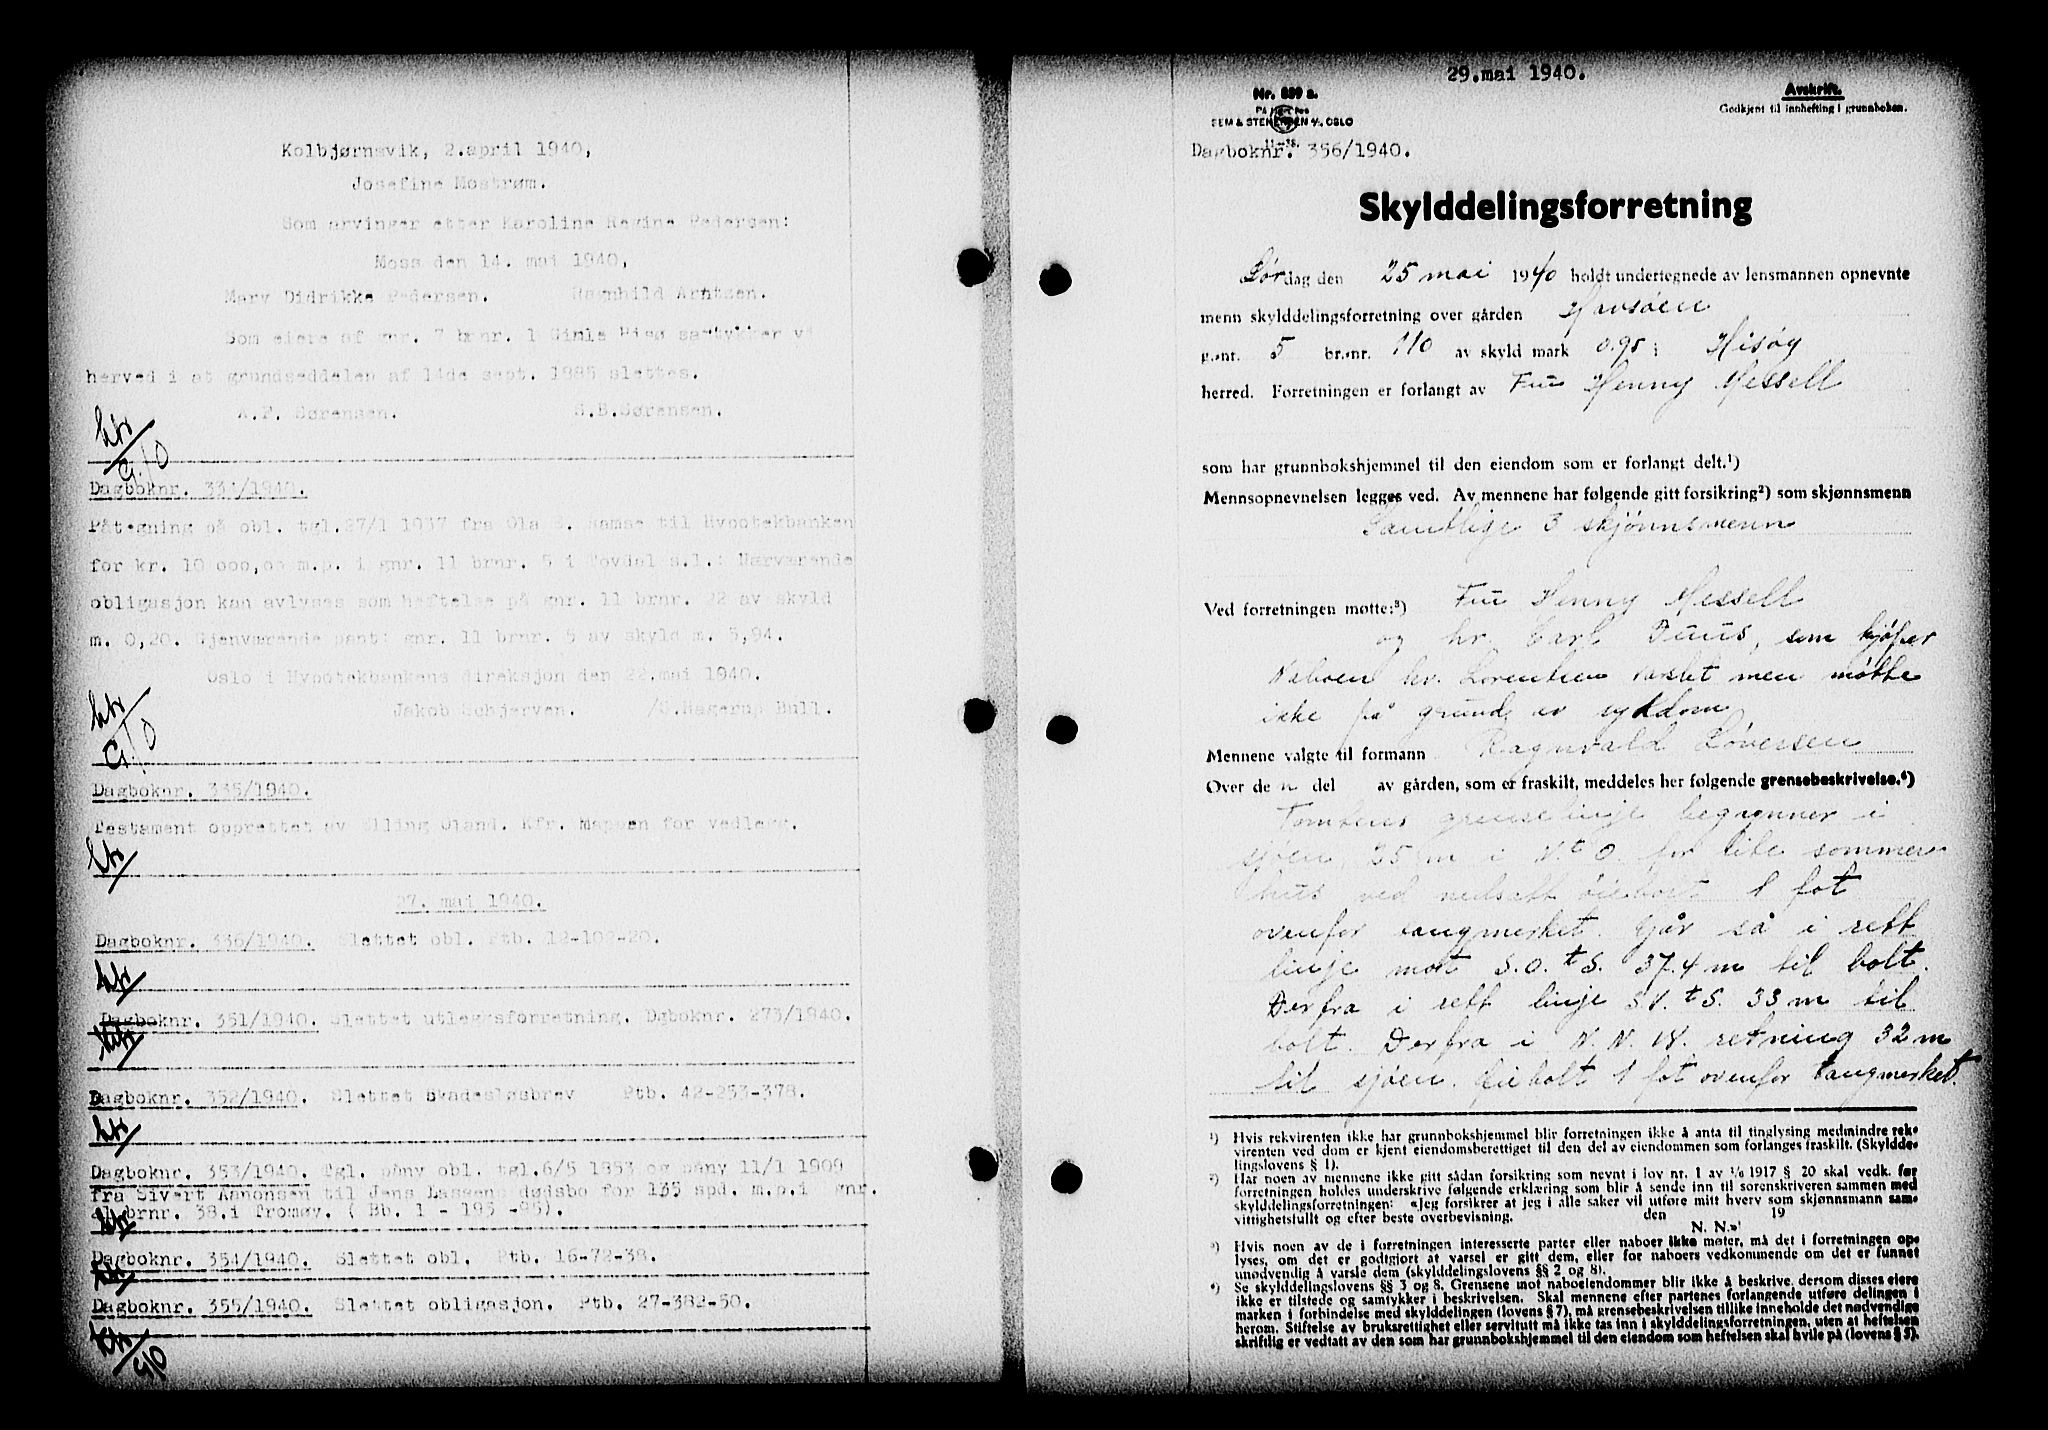 Kolbjørnsvik, 2.april 1940,
Josefine Mostrøm.
Som arvinger etter Karoline Regine Pedersen:
Moss den 14. mai 1940,
Mary Didrikke Pedersen. Ragnhild Arntzen.
Som eiere af gnr. 7 brnr. 1 Gimle Hisø samtykker vi
herved i at grundseddelen af 14de sept. 1885 slettes.
A.F. Sørensen. S.B.Sørensen.
Dagboknr. 334/1940.
Påtegning på obl. tgl.27/1 1937 fra Ola S. Ramse til Hypotekbanken
for kr. 10 000,oo m.p. i gnr. 11 brnr. 5 i Tovdal s.l.: Nærværende
obligasjon kan avlyses som heftelse på gnr. 11 brnr. 22 av skyld
m. 0,20. Gjenværende pant: gnr. 11 brnr. 5 av skyld m. 3,94.
Oslo i Hypotekbankens direksjon den 22.mai 1940.
Jakob Schjerven. /S.Hagerup Bull.
Dagboknr. 335/1940.
Testament opprettet av Elling Oland. Kfr. mappen for vedlegg.
27. mai 1940.
Dagboknr. 336/1940. Slettet obl. Ptb. 12-102-20.
Dagboknr. 351/1940. Slettet utleggsforretning. Dgboknr. 273/1940.
Dagboknr. 352/1940. Slettet Skadesløsbrev Ptb. 42-253-378.
Dagboknr. 353/1940. Tgl. påny obl. tgl.6/5 1853 og påny 11/1 1909
fra Sivert Aanonsen til Jens Lassens dødsbo for 135 spd. m.p.i gnr.
brnr. 38.i Tromøy. ( Bb. 1 - 195 -95).
Dagboknr. 354/1940. Slettet obl. Ptb. 16-72-38.
Dagboknr. 355/1940. Slettet obligasjon. Ptb. 27-382-50.
29.mai 1940.
Nr. 889 a.
SEM & STENERSEN A/S OSLO
Avskrift.
Godkjent til innhefting i grunnboken.
Dagboknr. 356/1940.
Skylddelingsforretning
Lørdag den 25 mai 1940 holdt undertegnede av lensmannen opnevnte
menn skylddelingsforretning over gården Havsøen
g.nr. 5 br.nr. 110 av skyld mark 0.95 i Hisøy
herred. Forretningen er forlangt av Fru Henny Messell
som har grunnbokshjemmel til den eiendom som er forlangt delt.¹)
Mennsopnevnelsen legges ved. Av mennene har følgende gitt forsikring²) som skjønnsmenn
Samtlige 3 skjønnsmenn
Ved forretningen møtte:³) Fru Henny Messell
og hr. Carl Duus, som kjøper
Naboen hr. Lorentzen varslet men møtte
ikke på grund av sykdom
Mennene valgte til formann Ragnvald Løversen
Over de n del av gården, som er fraskilt, meddeles her følgende grensebeskrivelse.⁴)
Tomtens grenselinje begynner i
sjøen, 25 m i N.t.O. for lite sommer
hus ved nedsatt øiebolt 1 fot
ovenfor tangmerket. Går så i rett
linje mot S.O.t.S. 37.4 m til bolt.
Derfra i rett linje S.V.t.S. 33 m til
bolt. Derfra i N.N.W. retning 32 m
til sjøen. Øiebolt 1 fot ovenfor tangmerket.
¹) Hvis rekvirenten ikke har grunnbokshjemmel blir forretningen ikke å anta til tinglysing medmindre rek-
virenten ved dom er kjent eiendomsberettiget til den del av eiendommen som forlanges fraskilt. (Skyldde-
lingslovens § 1).
²) Har noen av mennene ikke gitt sådan forsikring som nevnt i lov nr. 1 av 1/6 1917 § 20 skal vedk. før
forretningen holdes underskrive følgende erklæring som blir å sende inn til sorenskriveren sammen med
skylddelingsforretningen: «Jeg forsikrer at jeg i alle saker vil utføre mitt hverv som skjønnsmann sam-
vittighetsfullt og efter beste overbevisning. den 19
N. N.»
³) Hvis noen av de i forretningen interesserte parter eller naboer ikke møter, må det i forretningen op-
lyses, om det er godtgjort at varsel er gitt dem, eller for naboers vedkommende om det er funnet
unødvendig å varsle dem (skylddelingslovens §§ 2 og 8).
⁴) Se skylddelingslovens §§ 3 og 8. Grensene mot naboeiendommer blir ikke å beskrive, dersom disses eiere
ikke er tilstede og samtykker i beskrivelsen. Skal mennene efter partenes forlangende utføre delingen i
marken i forbindelse med skylddelingen (lovens § 7), må grensebeskrivelsen tillike inneholde det nødvendige
herom. Stiftelse av bruksrettighet eller servitutt må ikke tas inn i skylddelingsforretningen, uten at heftelsen
skriftlig er vedtatt av den som har grunnbokshjemmel til den eiendom som heftelsen skal hvile på (lovens § 5).